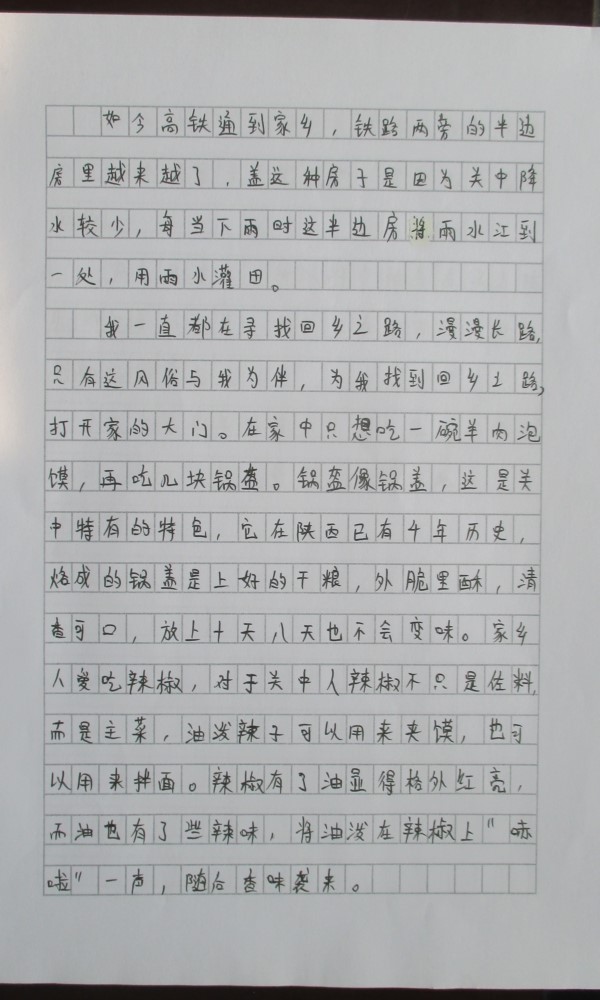 如今高铁通到家乡，铁路两旁的半边
房里越来越了，盖这种房子是因为关中降
水较少，每当下雨时这半边房将雨水江到
一处，用雨水灌田。
我一直都在寻找回乡之路，漫漫长路，
只有这风俗与我为伴，为我找到回乡之路，
打开家的大门。在家中只想吃一碗羊肉泡
馍，再吃几块锅盔。锅盔像锅盖，这是关
中特有的特包，它在陕西已有千年历史，
烙成的锅盖是上好的干粮，外脆里酥，清
香可口，放上十天八天也不会变味。家乡
人爱吃辣椒，对于关中人辣椒不只是佐料，
而是主菜，油泼辣子可以用来夹馍，也可
以用来拌面。辣椒有了油显得格外红亮，
而油也有了些辣味，将油泼在辣椒上"哧
啦"一声，随后香味袭来。